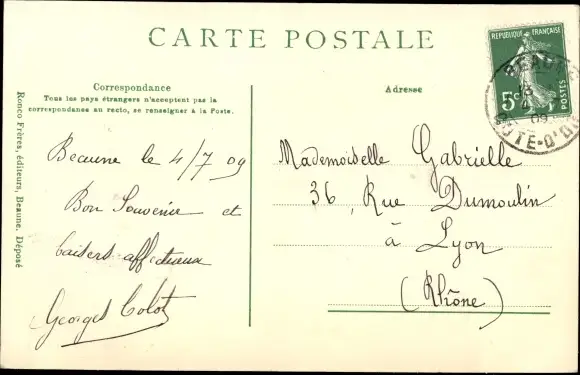 CARTE POSTALE
Correspondance
Tous les pays étrangers n'acceptent pas la
correspondance au recto, se renseigner à la Poste.
Adresse
Ronco Frères, éditeurs, Beaune. Déposé
Beaune le 4/7 09
Bon Souvenir et
baisers affectueux
Georges Colot
Mademoiselle Gabrielle
36, Rue Dumoulin
à Lyon
(Rhône)
REPUBLIQUE FRANÇAISE
5c
POSTES
BEAUNE
4
09
COTE-D'OR